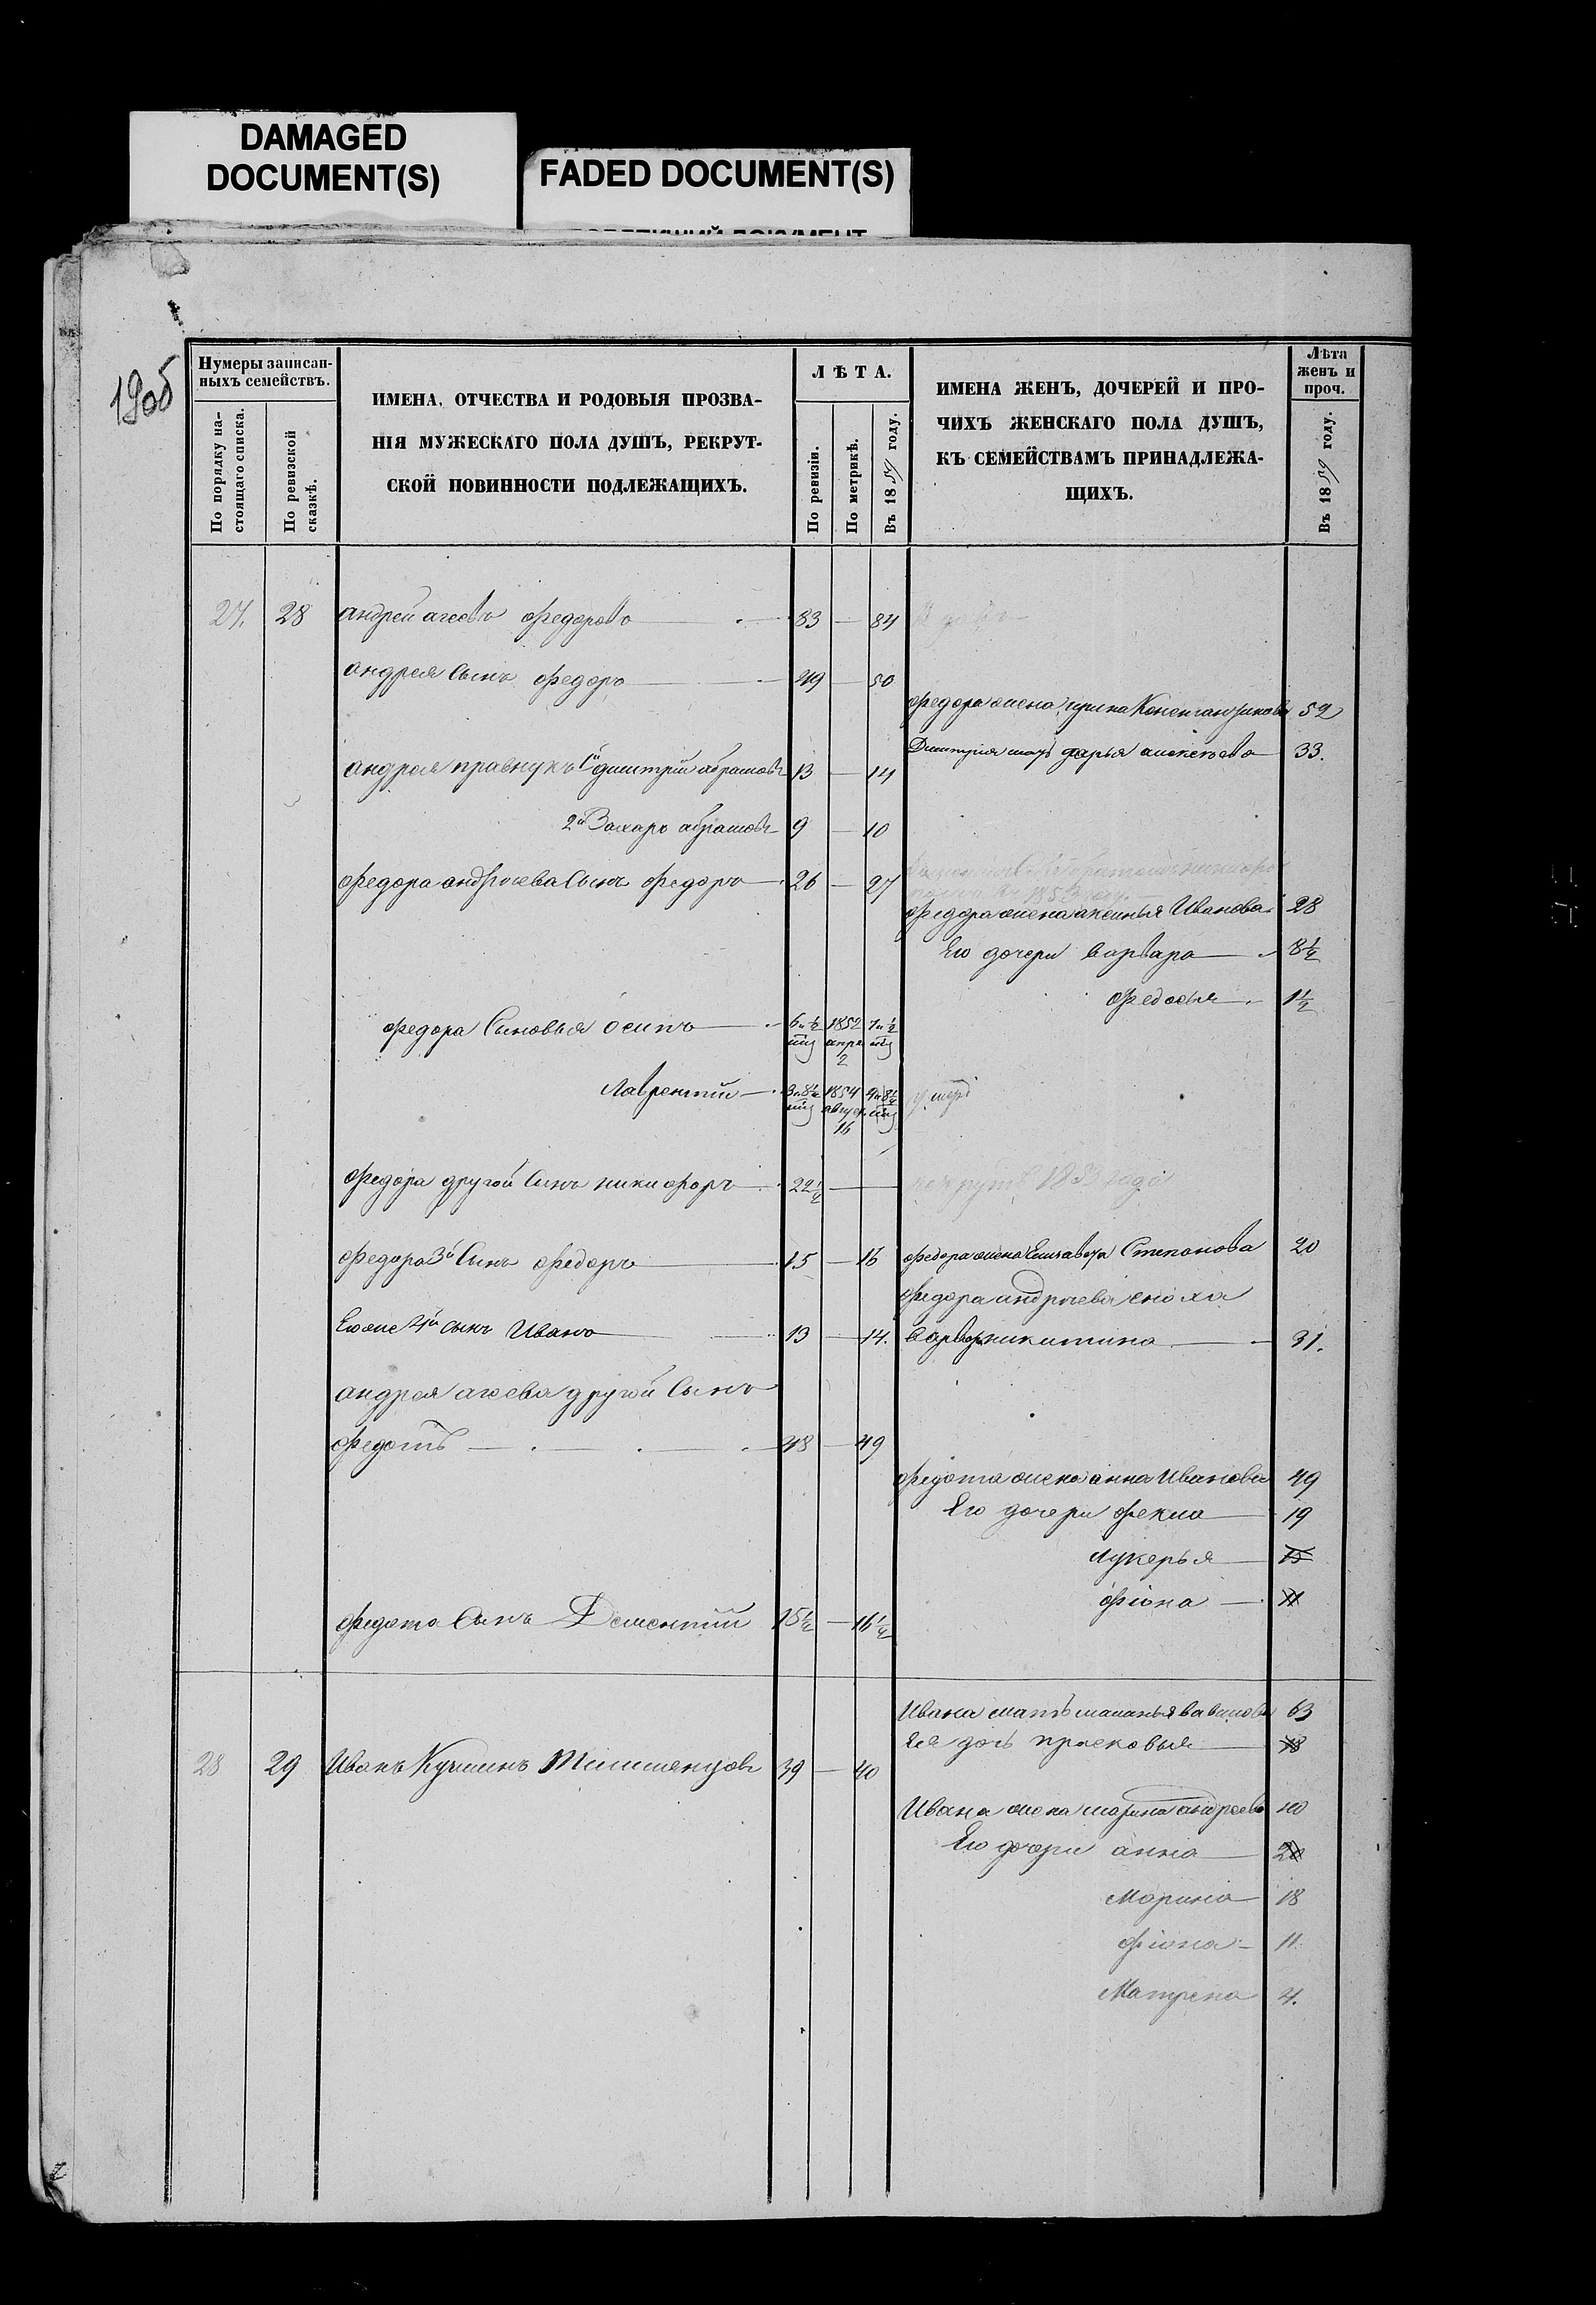 DAMAGED
DOCUMENT(S)
FADED DOCUMENT(S)
190б
Нумеры записан-
ныхъ семействъ.
По порядку на-
стоящаго списка.
По ревизской
сказкѣ.
ИМЕНА, ОТЧЕСТВА И РОДОВЫЯ ПРОЗВА-
НІЯ МУЖЕСКАГО ПОЛА ДУШЪ, РЕКРУТ-
СКОЙ ПОВИННОСТИ ПОДЛЕЖАЩИХЪ.
ЛѢТА.
По ревизіи.
По метрикѣ.
Въ 1859 году.
ИМЕНА ЖЕНЪ, ДОЧЕРЕЙ И ПРО-
ЧИХЪ ЖЕНСКАГО ПОЛА ДУШЪ,
КЪ СЕМЕЙСТВАМЪ ПРИНАДЛЕЖА-
ЩИХЪ.
Лѣта
женъ и
проч.
Въ 1859 году.
27. 28 андрей агеевъ федоровъ 83 — 84
андрея сынъ федоръ 49 — 50
федора жена ирина 52
Дмитрия мать дарья алексеева 33.
андрея правнукъ 1й дмитрій абрамовъ 13 — 14
2й Захаръ абрамовъ 9 — 10
федора андреева сынъ федоръ 26 — 27
1853 году.
федора жена аксинья Иванова 28
Его дочери варвара 8½
федосья 1½
федора Сыновья осипъ 6 и ½ мц 1852 апре 2 7 и ½ мц
Лаврентій 3 и 8½ мц 1854 август 16 4 и 8½ мц умеръ
федора другой Сынъ никифоръ 22½ — рекрутъ 1853 года
федора 3й Сынъ федоръ 15 — 16 федора жена Елизавета Степанова 20
федора андреева сноха
Его же 4й сынъ Иванъ 13 — 14. варвара никитина 31.
андрея агеева другой Сынъ
федотъ 48 — 49
федота жена анна Иванова 49
Его дочери фекла 19
лукерья 15
фіона 11
федота Сынъ Дементій 15½ — 16½
Ивана мать маланья вавилова 63
Ея дочь прасковья 18
28 29 Иванъ 39 — 40
Ивана жена марина андреева 40
Его дочери анна 20
Марина 18
фіона 11
Матрена 4.